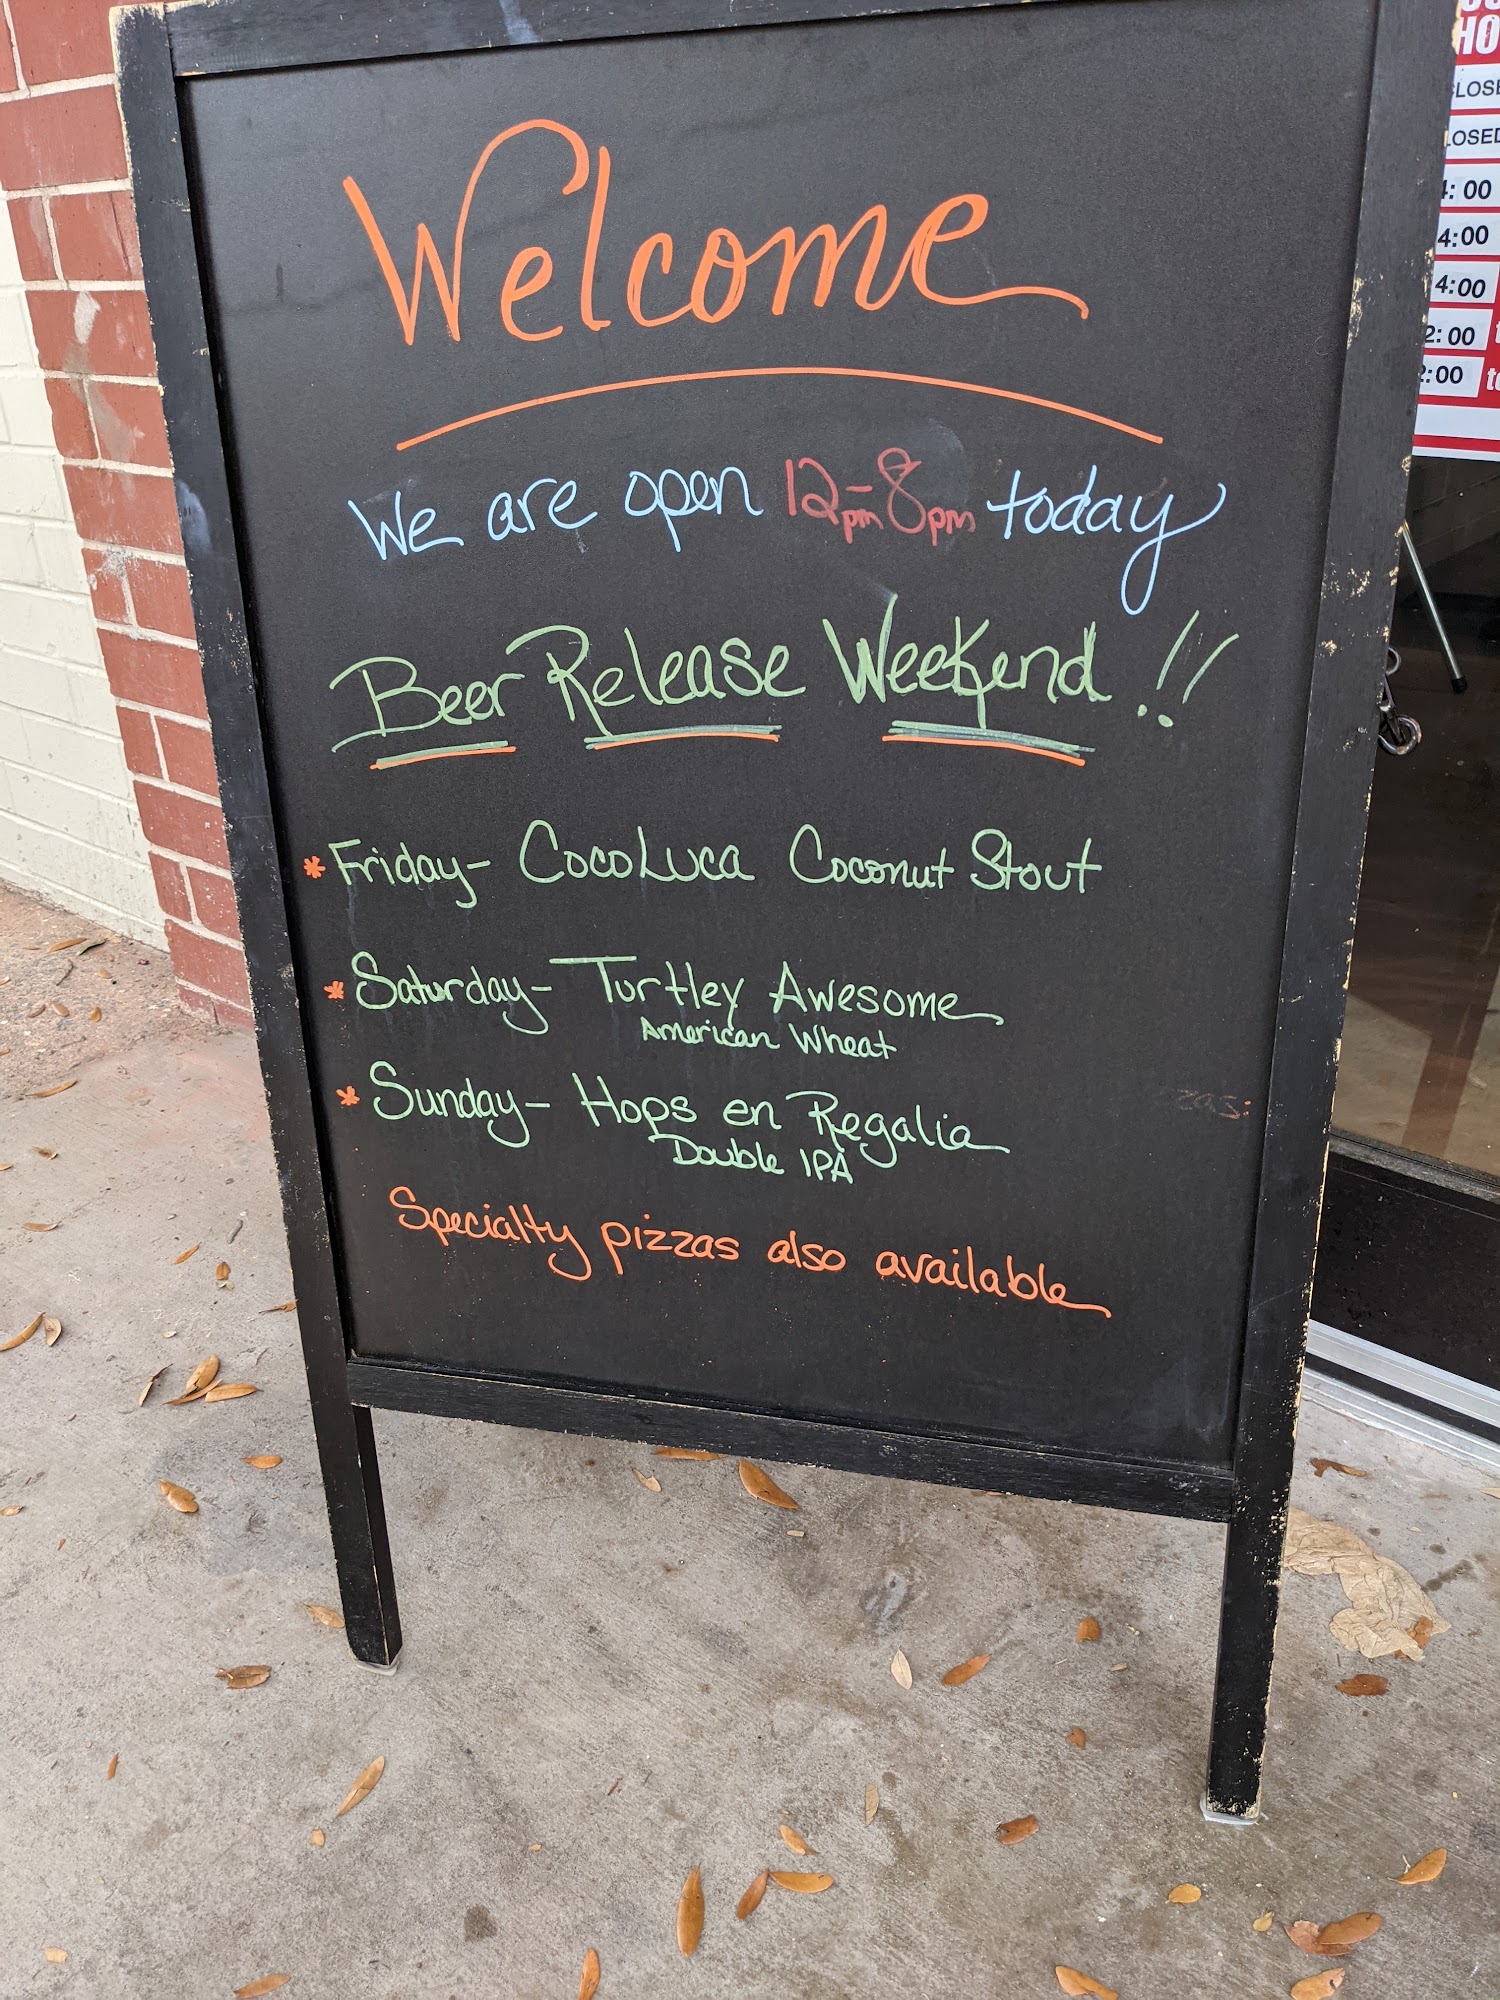 Welcome
We are open 12pm-8pm today
Beer Release Weekend!!
* Friday- CocoLuca Coconut Stout
* Saturday- Turtley Awesome
American Wheat
* Sunday- Hops en Regalia
Double IPA
Specialty pizzas also available
HO
CLOSE
LOSED
4:00
4:00
4:00
2:00
2:00